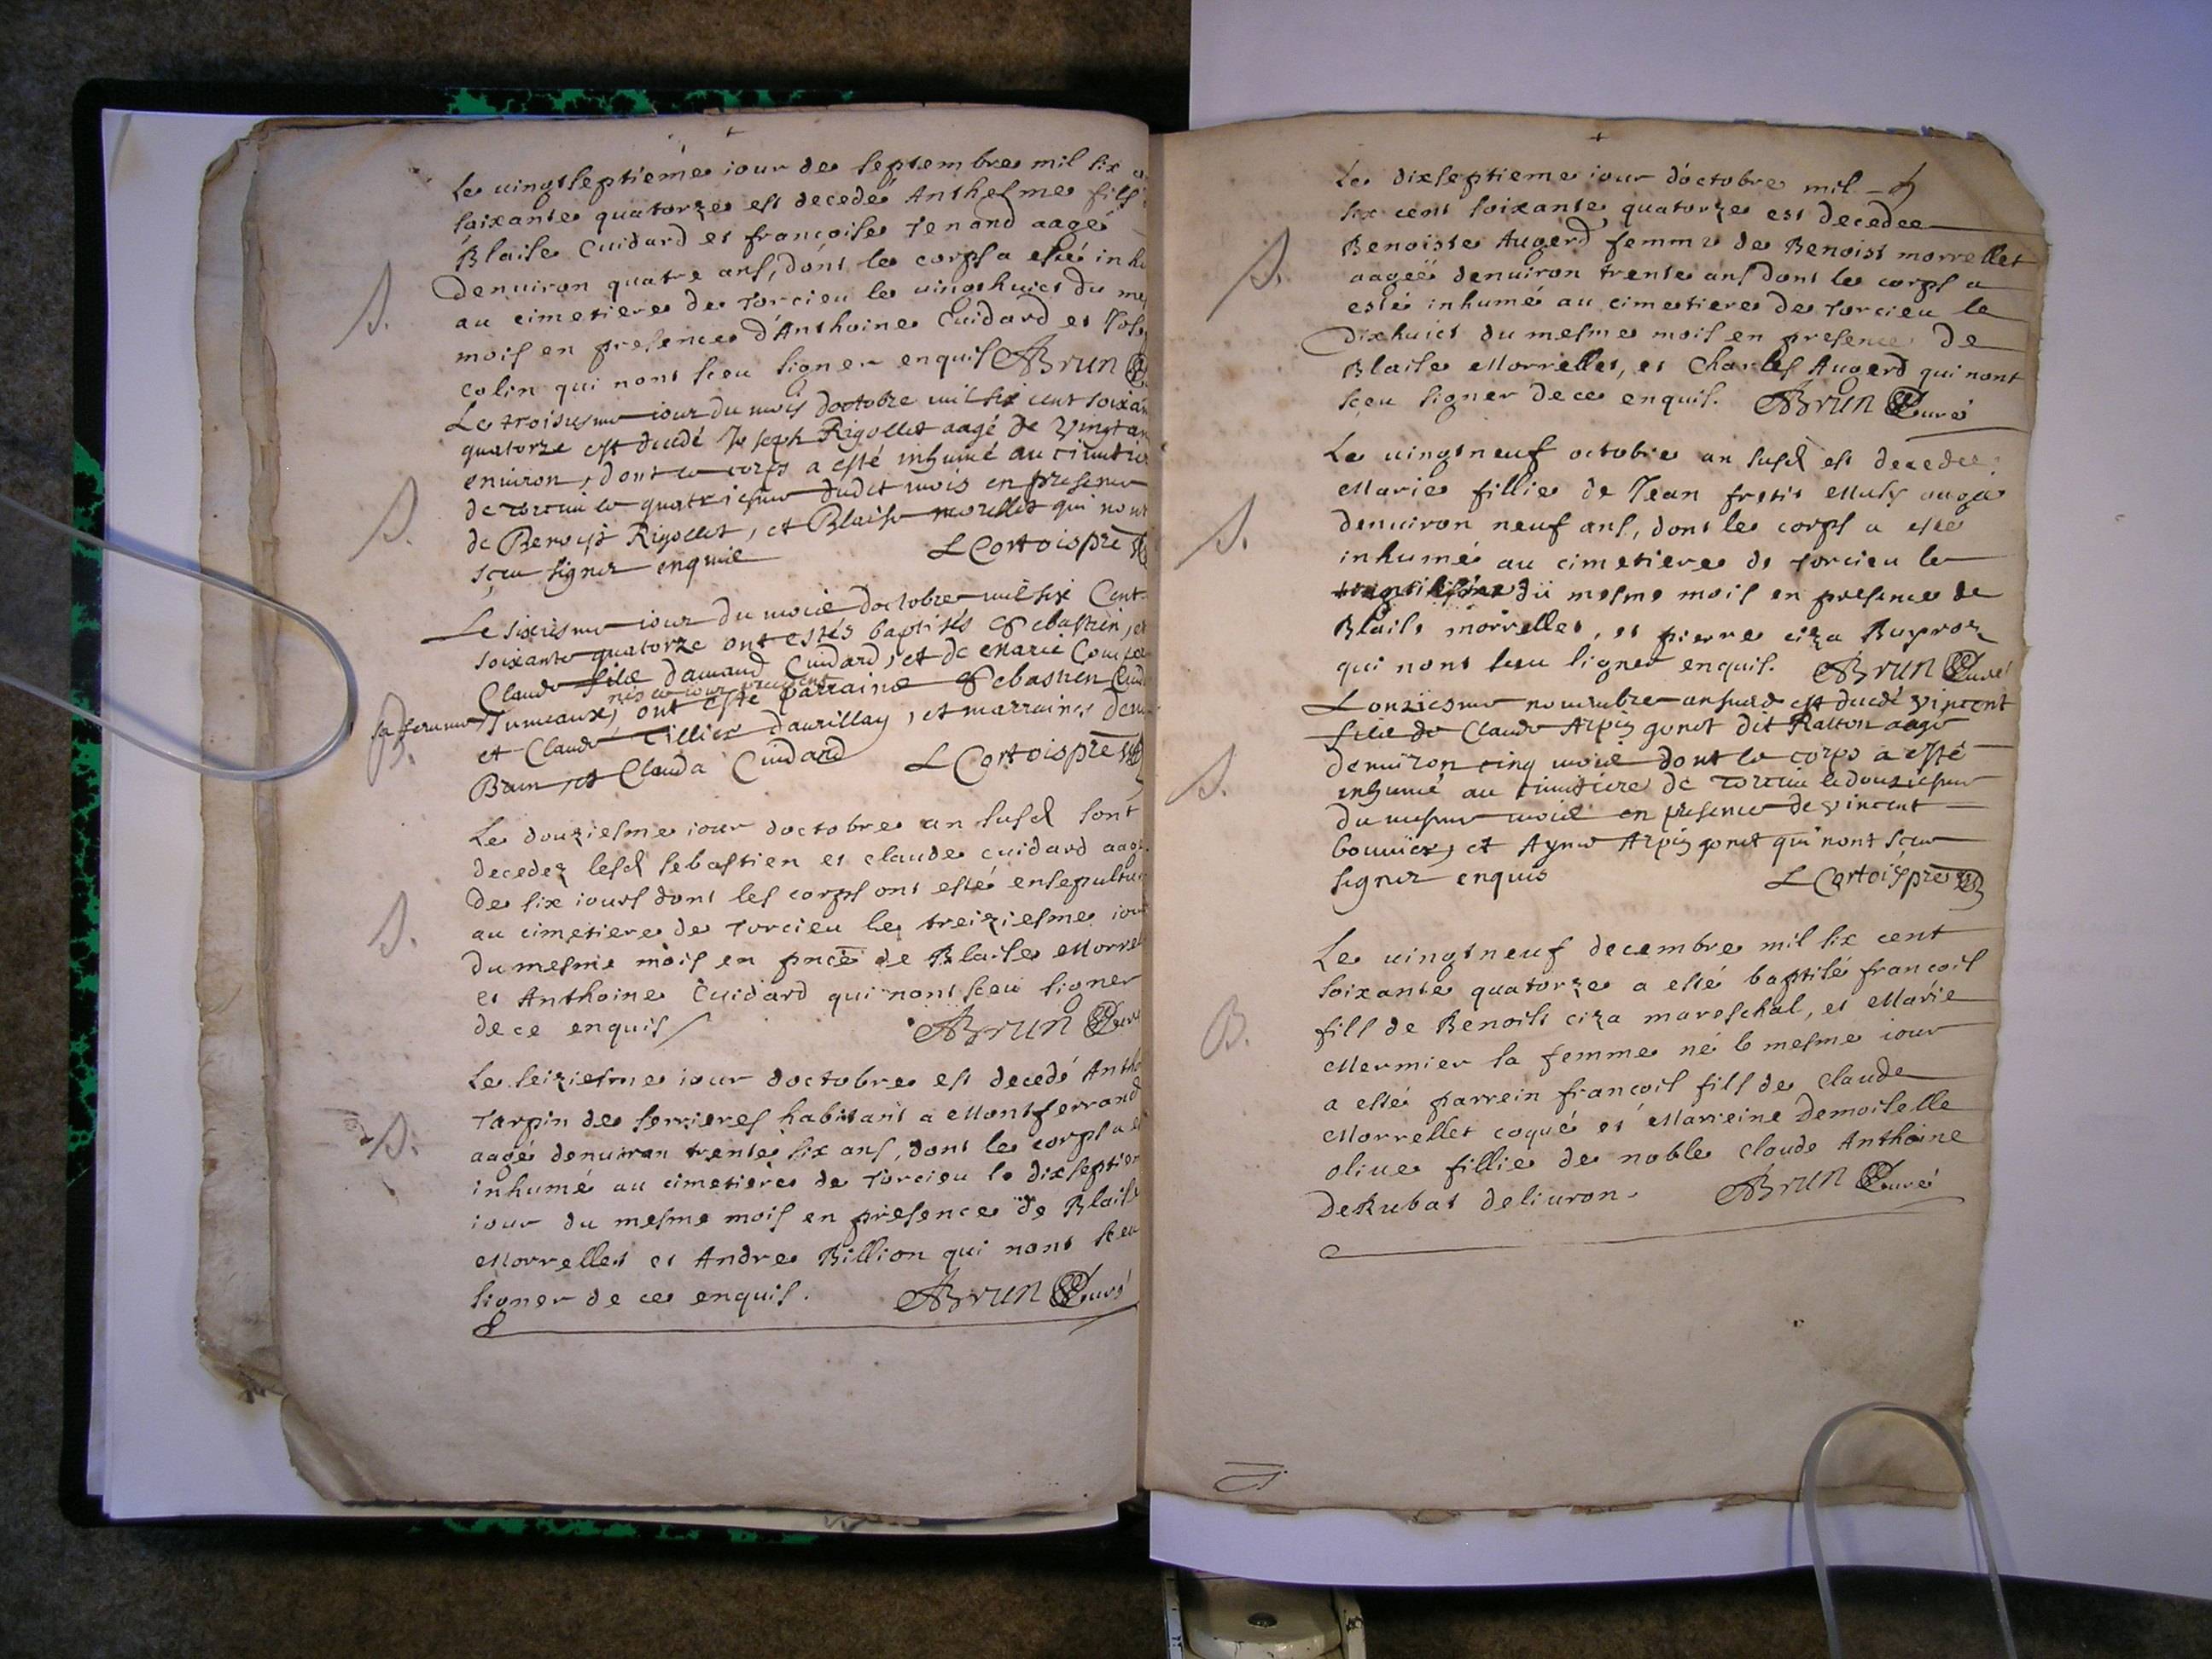 Le vingtseptieme iour de septembre mil six
soixante quatorze est decedé Anthelme fils
Blaise Cuidard et francoise Tenand aagé
denuiron quatre ans, dont le corps a esté inh
S.
au cimetiere de Torcieu le vingthuict du me
mois en presence d'Anthoine Cuidard et Jos
colin qui nont sceu signer enquis ABrun
Le troisiesme iour du mois doctobre mil six cent soixan
quatorze est decedé Joseph Rigollet aagé de vingt an
enuiron, dont le corps a esté inhumé au cimetie
S.
de torcieu le quatriesme dudit mois en presence
de Benoist Rigollet, et Blaise morellet qui nont
sceu signer enquis LCortois pre
Le sixiesme iour du mois doctobre mil six Cent
soixante quatorze ont estés baptisés Sebastien, et
Claude fils damand Cuidard, et de Marie
nés le iour
sa femme Jumeaux, ont esté parrains Sebastien Cuid
B.
et Claude Tillier daurillay, et marraines
Brun, et Clauda Cuidard LCortois pre
Le douziesme iour doctobre an susd sont
decedez lesd sebastien et claude cuidard aag
de six iours dont les corps ont esté ensepultu
S.
au cimetiere de Torcieu le treiziesme iou
du mesme mois en pnce de Blaise Morre
et Anthoine Cuidard qui nont sceu signer
de ce enquis ABrun Curé
Le seiziesme iour doctobre est decedé Antho
Tarpin de serrieres habitant a Montferrand
S.
aagé denuiron trente six ans, dont le corps a e
inhumé au cimetiere de Torcieu le dixseptie
iour du mesme mois en presence de Blaise
Morrellet et Andre Billion qui nont sceu
signer de ce enquis. ABrun Curé
Le dixseptieme iour d'octobre mil
six cent soixante quatorze est decedee
Benoiste Augerd femme de Benoist morrellet
S.
aageë denuiron trente ans dont le corps a
esté inhumé au cimetiere de Torcieu le
Dixhuict du mesme mois en presence de
Blaise Morrellet, et Charles Augerd qui nont
sceu signer de ce enquis. ABrun Curé
Le vingtneuf octobre an susd est decedee
Marie fillie de Jean aagee
denuiron neuf ans, dont le corps a esté
S.
inhumé au cimetiere de Torcieu le
du mesme mois en presence de
Blaise morrellet, et pierre ciza
qui nont sceu signer enquis. ABrun Curé
Lonziesme nouembre an susd est decedé vincent
fils de Claude Arpin gonet dit Ratton aagé
denuiron cinq mois dont le corps a esté
S.
inhumé au cimetiere de torcieu le douziesme
du mesme mois en presence de vincent
bouuier, et Ayme Arpin gonet qui nont sceu
signer enquis LCortois pre
Le vingtneuf decembre mil six cent
soixante quatorze a esté baptisé francois
fils de Benoist ciza mareschal, et Marie
B.
Mermier sa femme né le mesme iour
a esté parrein francois fils de claude
Morrellet coqué et Marreine Demoiselle
oliue fillie de noble Claude Anthoine
DeRubat deliuron. ABrun Curé